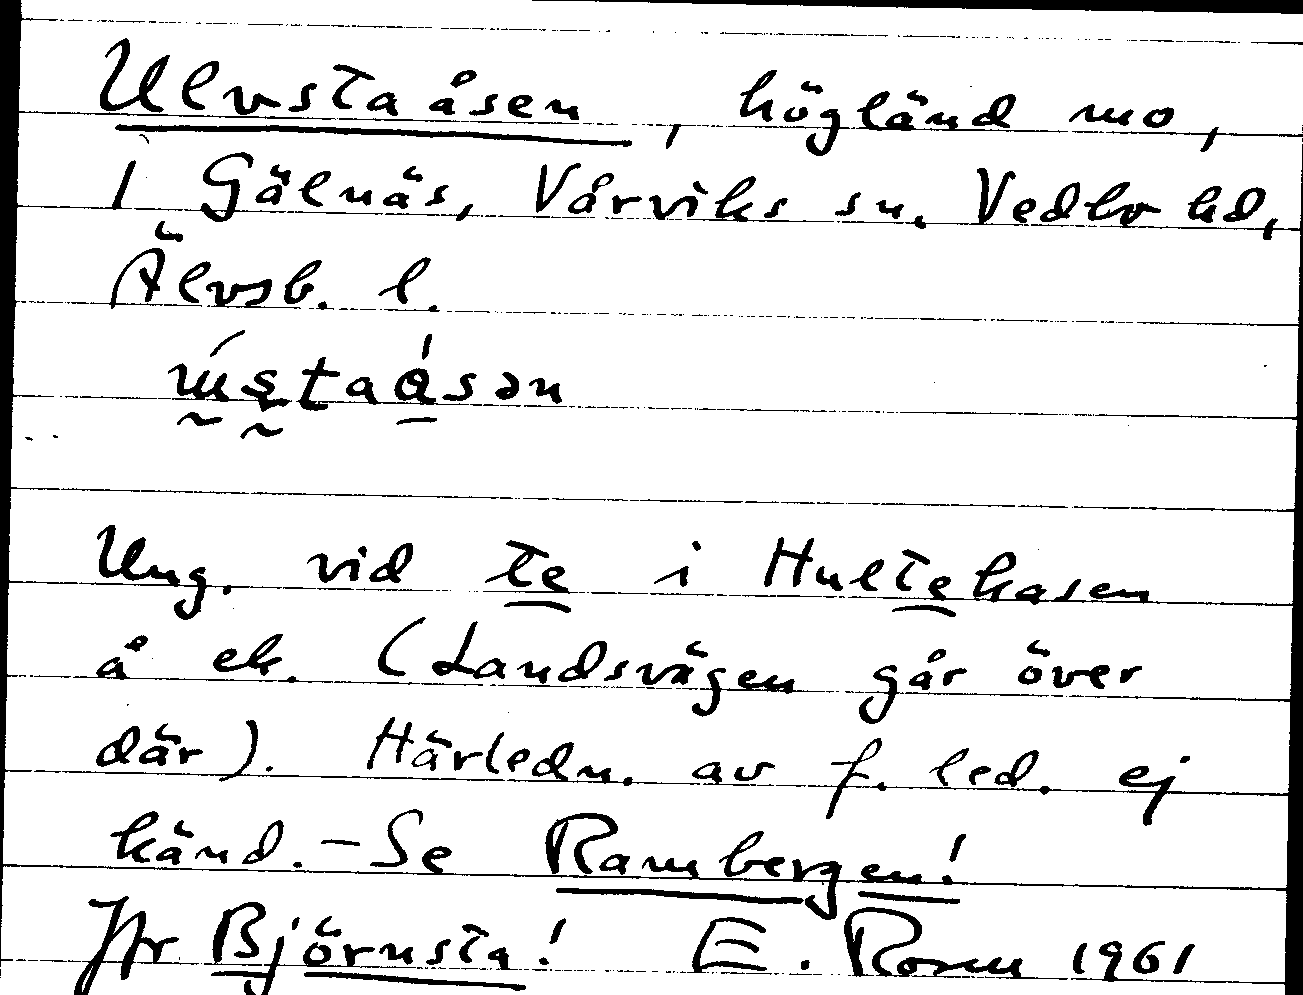 Ulvstaåsen, högländ mo,
i Gälnäs, Vårviks sn. Vedbo hd,
Älvsb. l.
Ung. vid te i Hultekasen
å ek. (Landsvägen går över
där). Härledn. av f. led. ej
känd. – Se Rambergen!
Jfr Björnsta! E. Rosm 1961